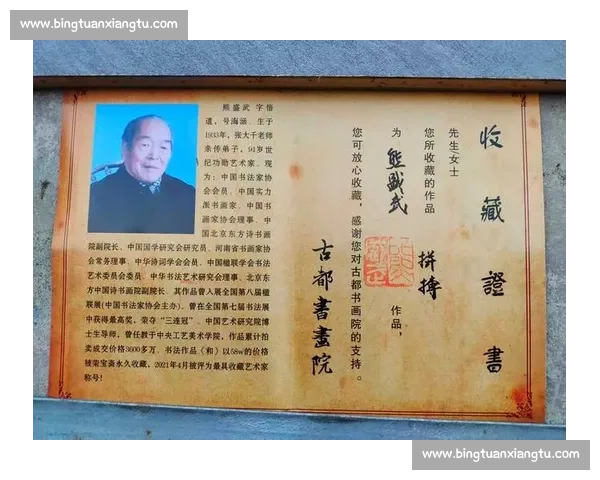 www.bingtuanxiangtu.com
收藏證书
先生/女士
您所收藏的作品 拼搏
为 熊盛武 作品，
您可放心收藏，感谢您对古都书画院的支持。
古都書畫院
熊盛武 字悟
道，号海涵、生于
1933年，张大千老师
亲传弟子，91岁世
纪功勋艺术家。现
为：中国书法家协
会会员、中国实力
派书画家、中国书
画家协会理事、中
国北京东方诗书画
院副院长、中国国学研究会研究员、河南省书画家协
会常务理事、中华诗词学会会员、中国楹联学会书法
艺术委员会委员、中华书法艺术研究会理事、北京东
方中国诗书画院副院长、其作品曾入展全国第八届楹
联展(中国书法家协会主办)。曾在全国第七届书法展
中获得最高奖，荣夺“三连冠”、中国艺术研究院博
士生导师，曾任教于中央工艺美术学院，作品累计拍
卖成交价格3600多万。书法作品（和）以58w的价格
被荣宝斋永久收藏，2021年4月被评为最具收藏艺术家
称号！
www.bingtuanxiangtu.com